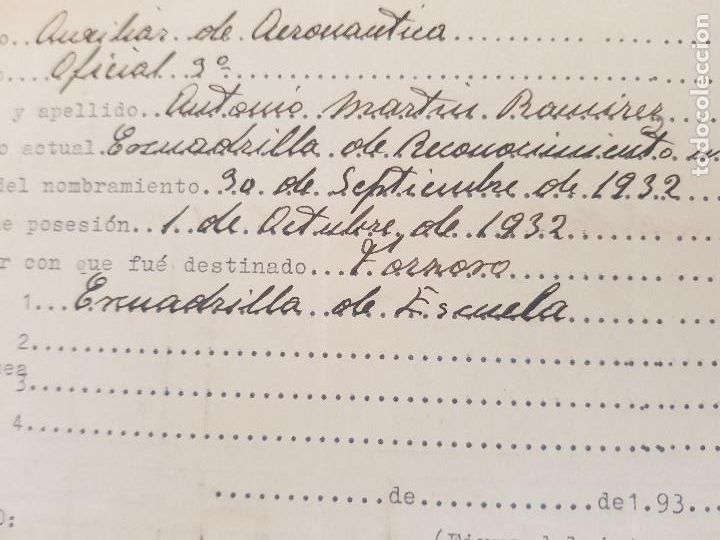 o..Auxiliar de Aeronautica
Oficial 3º
y apellido..Antonio Martin Ramirez
o actual.Escuadrilla de Reconocimiento
del nombramiento..30 de Septiembre de 1932
e posesión..1 de Octubre de 1932
r con que fué destinado...Forzoso
1...Escuadrilla de Escuela
2
ea
3
4
de de 1.93
O:
todocoleccion